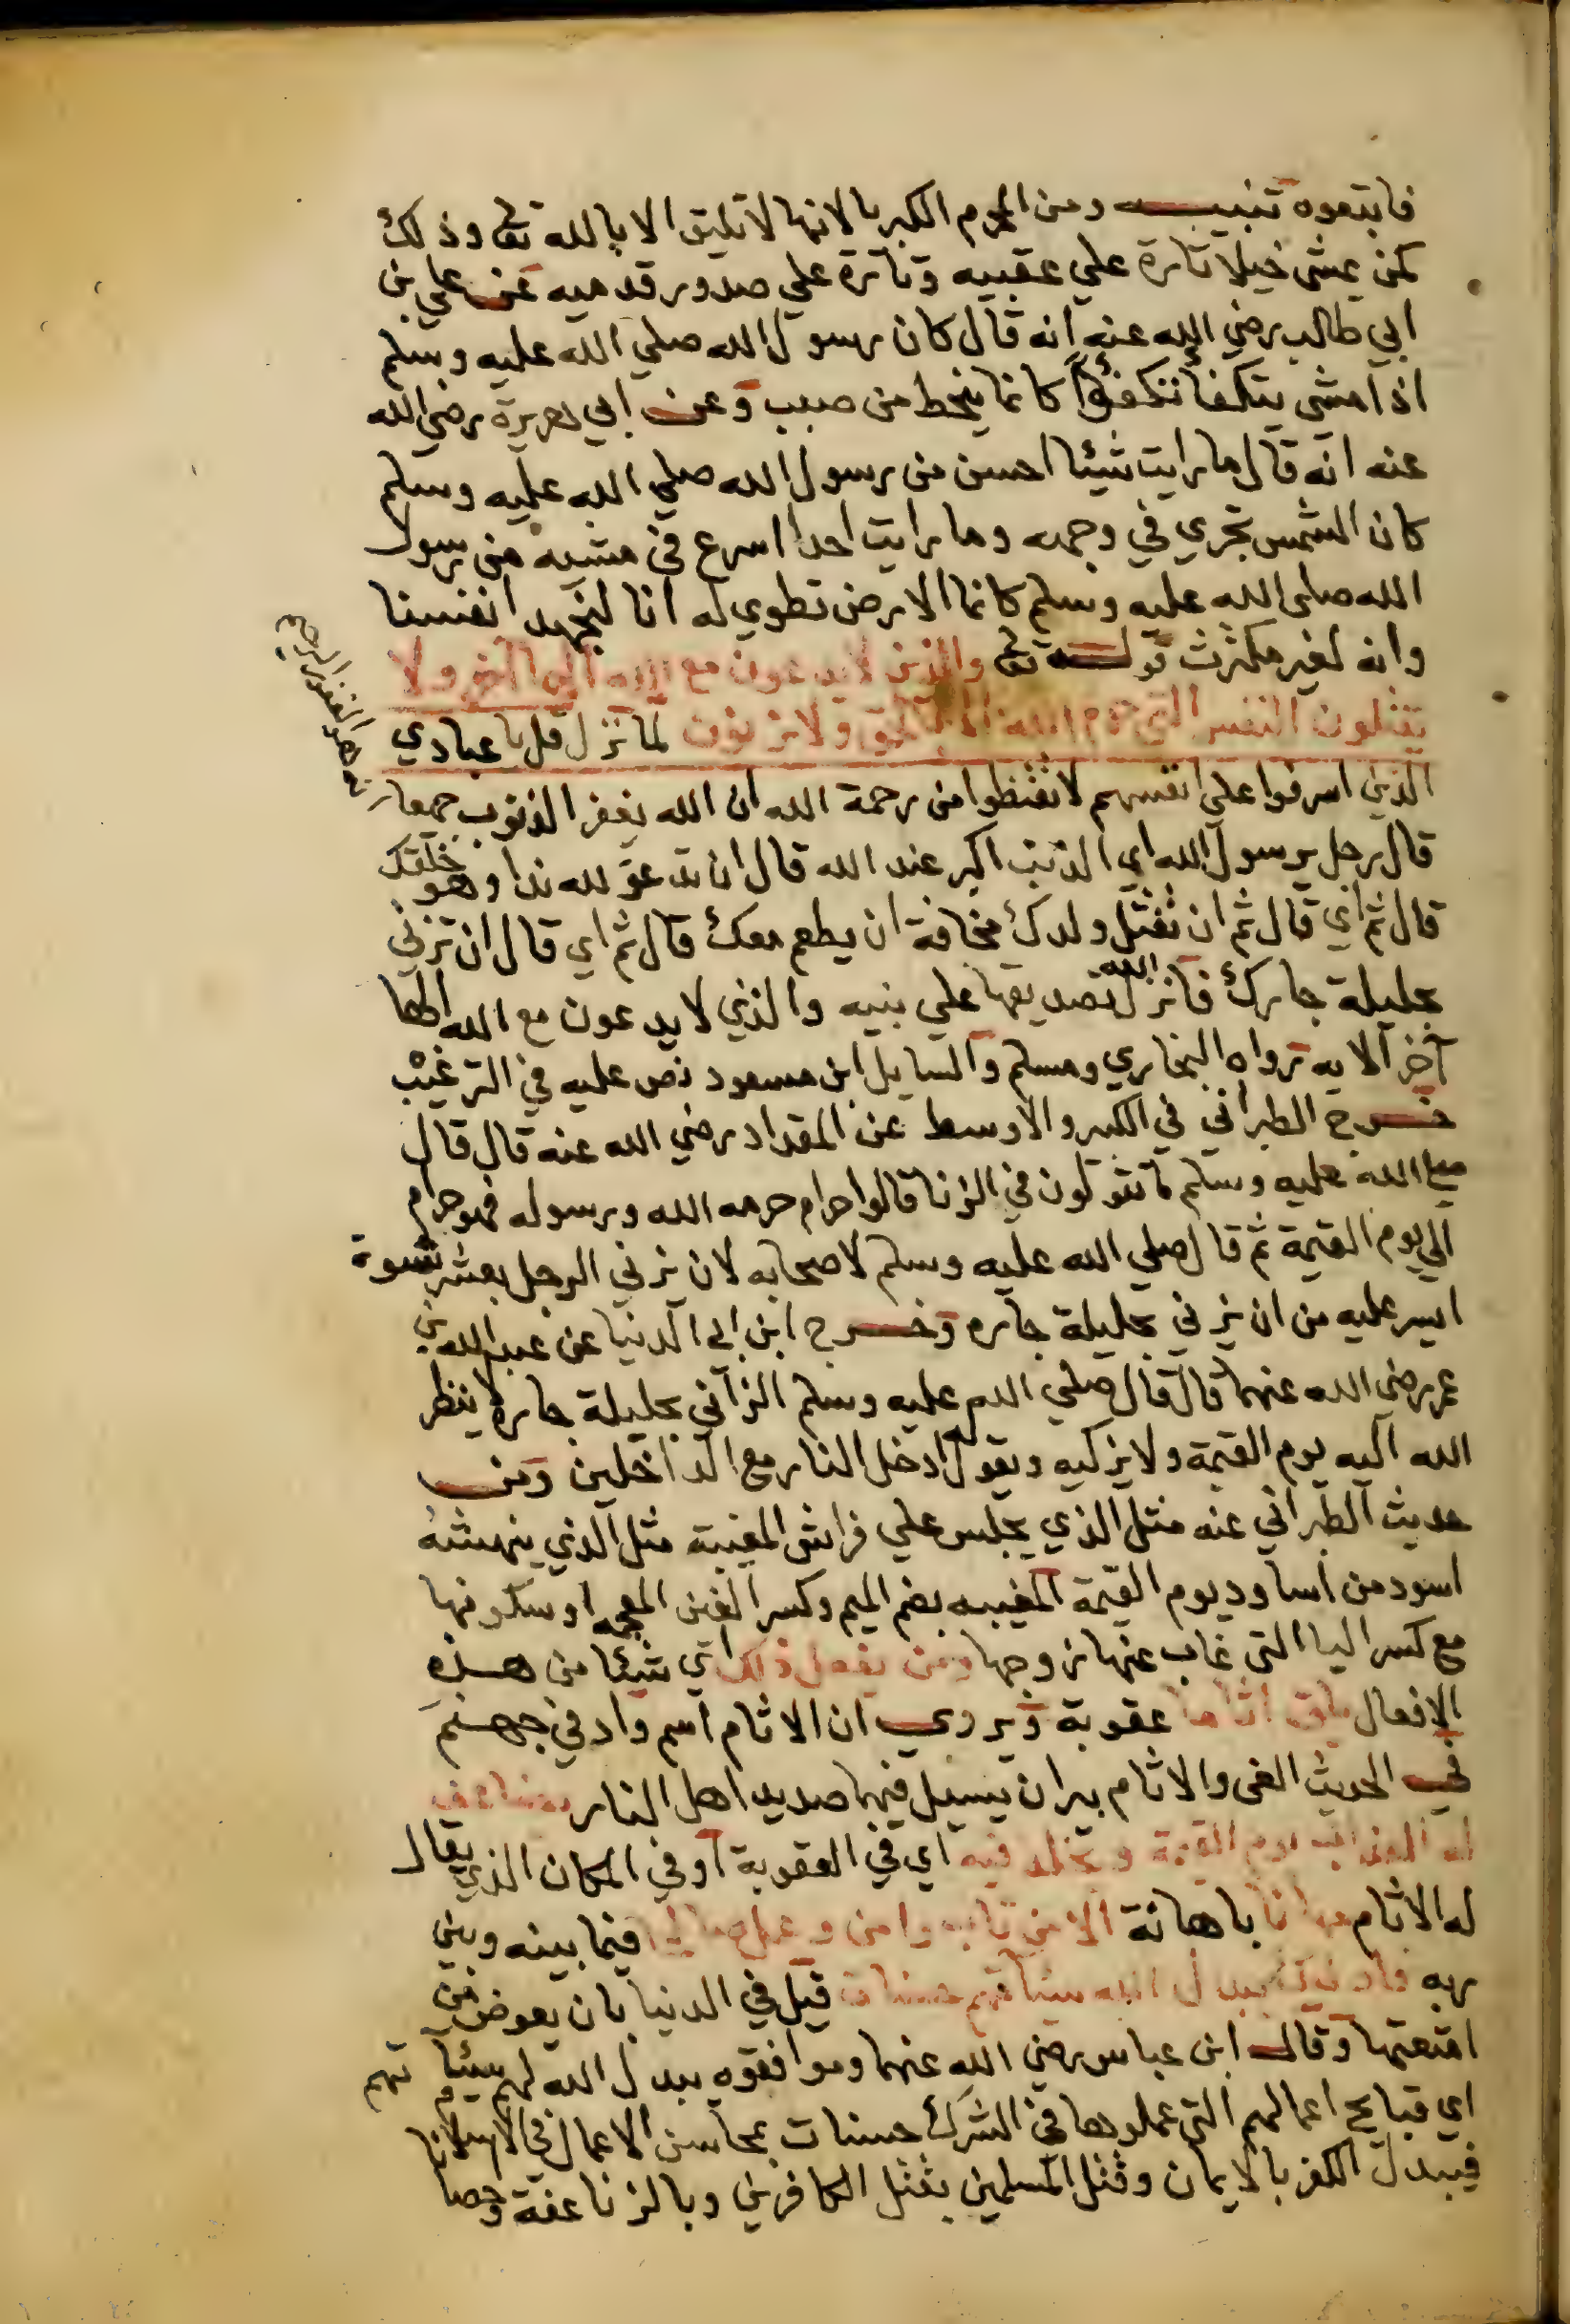 فابتعوه تنبيه ومن المحرم الكبريا لانها لا تليق الا بالله تع وذلك
كمن يمشى خيلا تارة علي عقبيه وتارة علي صدور قدميه عن علي بن
ابي طالب رضي الله عنه انه قال كان رسول الله صلي الله عليه وسلم
اذا مشي يتكفأ تكفؤاً كانما ينحط من صبب وعن ابي هريرة رضي الله
عنه انه قال ما رايت شيئا احسن من رسول الله صلي الله عليه وسلم
كان الشمس تجري في وجهه وما رايت احدا اسرع في مشيه من رسول
الله صلى الله عليه وسلم كانما الارض تطوي له انا لنجهد انفسنا
وانه لغير مكترث قوله تع والذين لا يدعون مع الله الها آخر ولا
يقتلون النفس التي حرم الله الا بالحق ولا يزنون لما نزل قل يا عبادي
الذين اسرفوا علي انفسهم لا تقنطوا من رحمة الله ان الله يغفر الذنوب جمعا
انه هو الغفور الرحيم
قال رجل يرسول الله اي الذنب اكبر عند الله قال ان تدعو لله ندا وهو خلقك
قال ثم اي قال ثم ان تقتل ولدك مخافة ان يطعم معك قال ثم اي قال ان تزني
بحليلة جارك فانزل الله تصديقها علي بنيه والذين لا يدعون مع الله الها
آخر الايه رواه البخاري ومسلم والسايل ابن مسعود نص عليه في الترغيب
خرج الطبراني في الكبير والاوسط عن المقداد رضي الله عنه قال قال
صلي الله عليه وسلم ما تقولون في الزنا قالوا حرام حرمه الله ورسوله فهو حرام
الي يوم القيمة ثم قال صلي الله عليه وسلم لاصحابه لان يزني الرجل بعشر نسوة
ايسر عليه من ان يزني بحليلة جاره وخرج ابن ابي الدنيا عن عبد الله بن
عمر رضي الله عنهما قال قال صلي الله عليه وسلم الزاني بحليلة جاره لا ينظر
الله اليه يوم القيمة ولا يزكيه ويقول ادخل النار مع الداخلين ومن
حديث الطبراني عنه مثل الذي يجلس علي فراش المغيبة مثل الذي ينهشه
اسود من اساود يوم القيمة المغيبه بضم الميم وكسر الغين المعجمه او سكونها
مع كسر اليا التي غاب عنها زوجها ومن يفعل ذلك اي شيئا من هذه
الافعال يلق اثاما عقوبة ويروي ان الاثام اسم واد في جهنم
في الحديث الغى والاثام بيران يسيل فيها صديد اهل النار يضاعف
له العذاب يوم القيمة ويخلد فيه اي في العقوبة او في المكان الذي يقال
له الاثام مهانا باهانة الا من تاب وامن وعمل صالحا فيما بينه وبين
ربه فاولئك يبدل الله سيئاتهم حسنات قيل في الدنيا بان يعوض من
اقتعتها وقال ابن عباس رضي الله عنهما وموافقوه يبدل الله لهم سيئاتهم
اي قبايح اعمالهم التي عملوها في الشرك حسنات بمحاسن الاعمال في الاسلام
فيبدل الكفر بالايمان وقتل المسلمين بقتل الكافرين وبالزنا عفة وحصانا